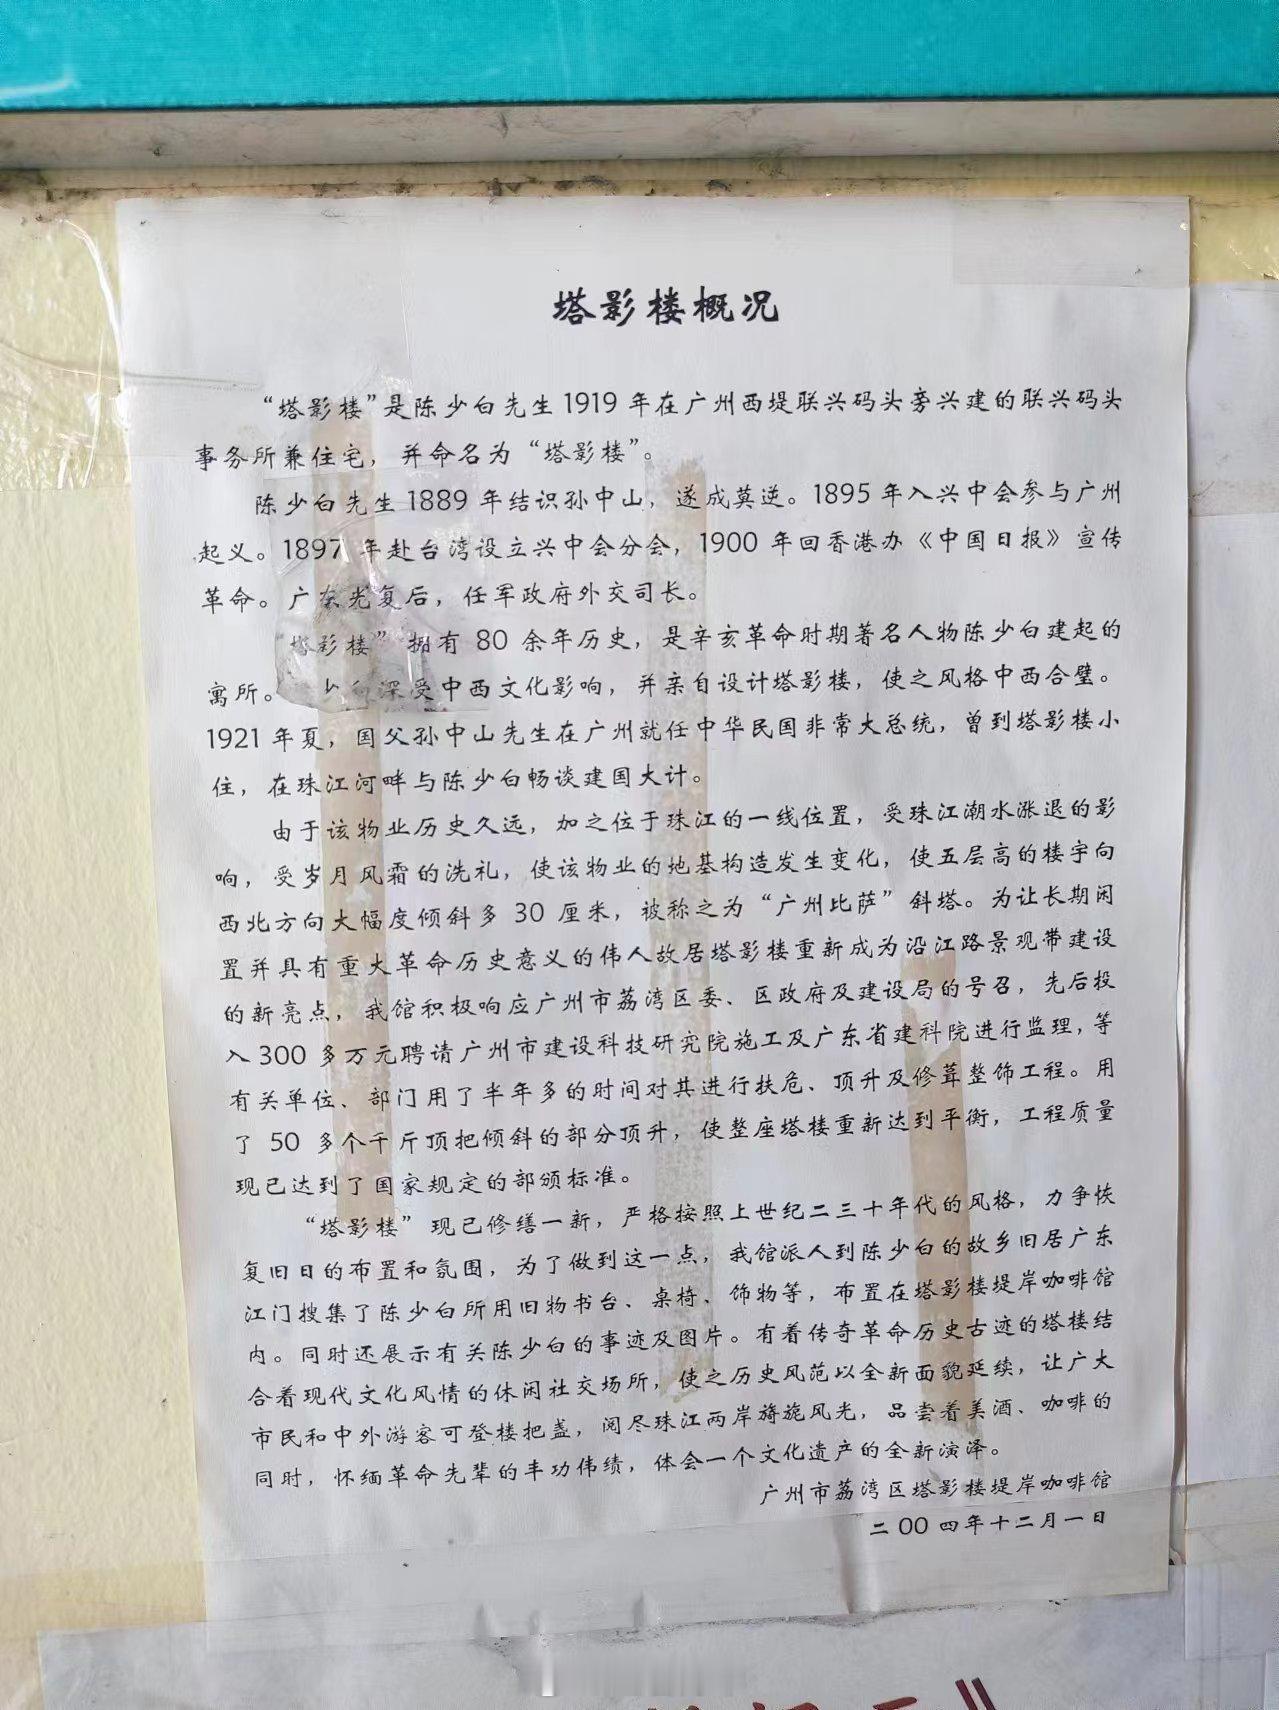 塔影楼概况
“塔影楼”是陈少白先生1919年在广州西堤联兴码头旁兴建的联兴码头
事务所兼住宅，并命名为“塔影楼”。
陈少白先生1889年结识孙中山，遂成莫逆。1895年入兴中会参与广州
起义。1897年赴台湾设立兴中会分会，1900年回香港办《中国日报》宣传
革命。广东光复后，任军政府外交司长。
“塔影楼”拥有80余年历史，是辛亥革命时期著名人物陈少白建起的
寓所。少白深受中西文化影响，并亲自设计塔影楼，使之风格中西合璧。
1921年夏，国父孙中山先生在广州就任中华民国非常大总统，曾到塔影楼小
住，在珠江河畔与陈少白畅谈建国大计。
由于该物业历史久远，加之位于珠江的一线位置，受珠江潮水涨退的影
响，受岁月风霜的洗礼，使该物业的地基构造发生变化，使五层高的楼宇向
西北方向大幅度倾斜多30厘米，被称之为“广州比萨”斜塔。为让长期闲
置并具有重大革命历史意义的伟人故居塔影楼重新成为沿江路景观带建设
的新亮点，我馆积极响应广州市荔湾区委、区政府及建设局的号召，先后投
入300多万元聘请广州市建设科技研究院施工及广东省建科院进行监理，等
有关单位、部门用了半年多的时间对其进行扶危、顶升及修葺整饰工程。用
了50多个千斤顶把倾斜的部分顶升，使整座塔楼重新达到平衡，工程质量
现已达到了国家规定的部颁标准。
“塔影楼”现已修缮一新，严格按照上世纪二三十年代的风格，力争恢
复旧日的布置和氛围，为了做到这一点，我馆派人到陈少白的故乡旧居广东
江门搜集了陈少白所用旧物书台、桌椅、饰物等，布置在塔影楼堤岸咖啡馆
内。同时还展示有关陈少白的事迹及图片。有着传奇革命历史古迹的塔楼结
合着现代文化风情的休闲社交场所，使之历史风范以全新面貌延续，让广大
市民和中外游客可登楼把盏，阅尽珠江两岸旖旎风光，品尝着美酒、咖啡的
同时，怀缅革命先辈的丰功伟绩，体会一个文化遗产的全新演泽。
广州市荔湾区塔影楼堤岸咖啡馆
二00四年十二月一日